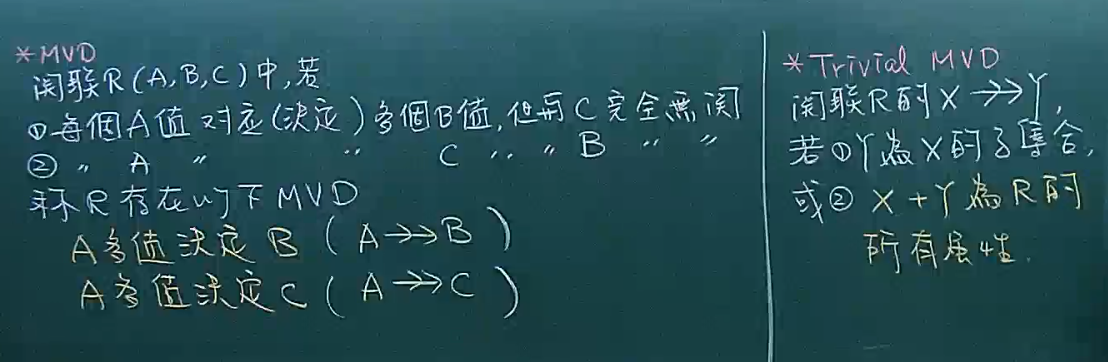 *MVD
関联R(A,B,C)中,若
①每個A值 对应(決定)多個B值,但與C完全無関
② 〃 A 〃 〃 C 〃 〃 B 〃 〃
R存在以下MVD
A多值決定B (A→→B)
A多值決定C (A→→C)
*Trivial MVD
関联R的X→→Y,
若①Y為X的子集合,
或② X+Y為R的
所有屬性.